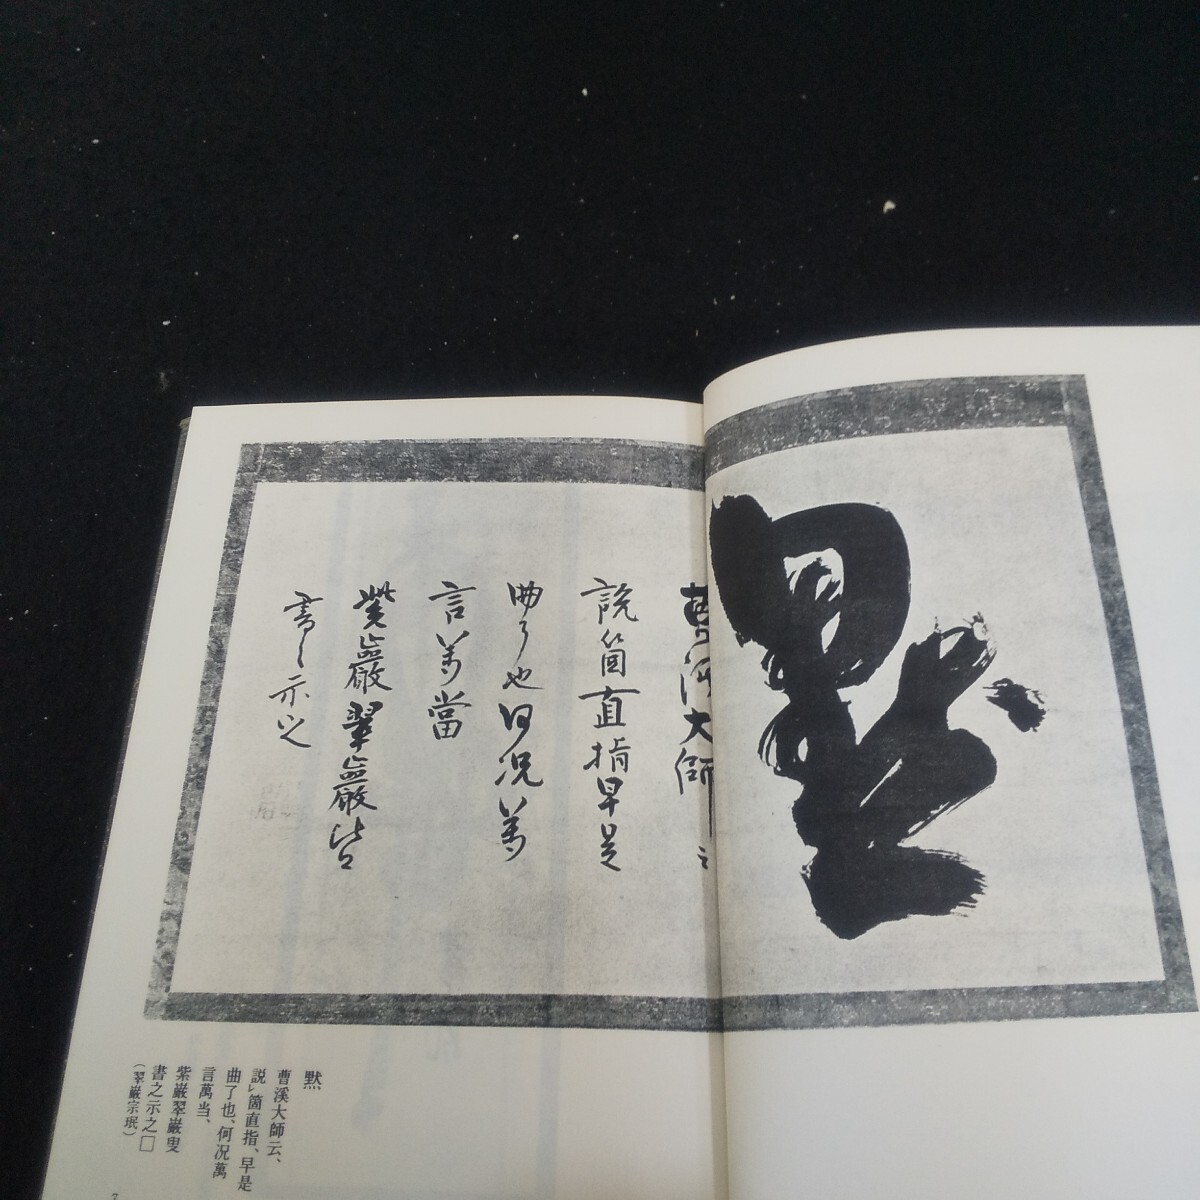 默
曹溪大師云
説箇直指早是
曲了也何况萬
言萬當
紫巖翠巖叟
書之示之
黙
曹溪大師云、
説レ箇直指、早是
曲了也、何況萬
言萬当、
紫巌翠巌叟
書之示之□
（翠巌宗珉）
7